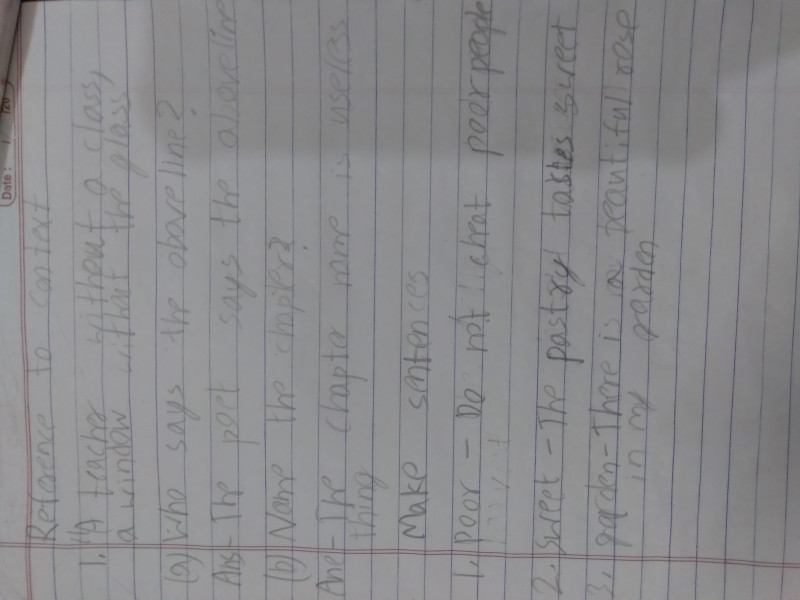 Date :
Reference to context
1. "A teacher without a class,
a window without the glass
(a) Who says the above line?
Ans- The poet says the above line
(b) Name the chapter?
Ans- The chapter name is useless
thing
Make sentences
1. Poor - Do not cheat poor people
2. Sweet - The pastry tastes sweet
3. garden - There is a beautiful rose
in my garden